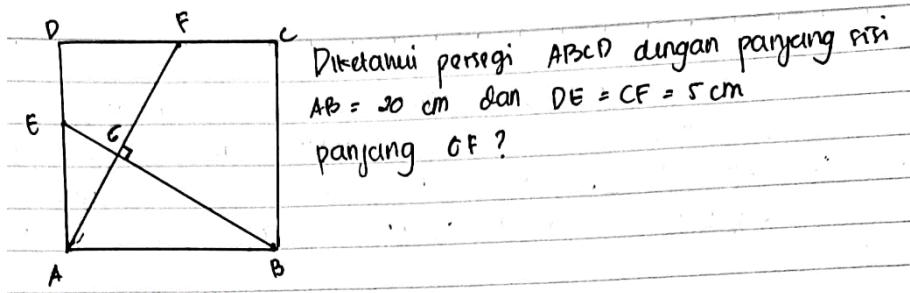 D F C
Diketahui persegi ABCD dengan panjang sisi
AB = 20 cm dan DE = CF = 5 cm
E G
panjang GF ?
A B